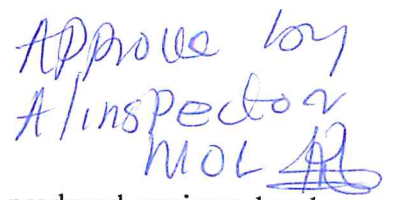 Approve by
A/inspector
MOL